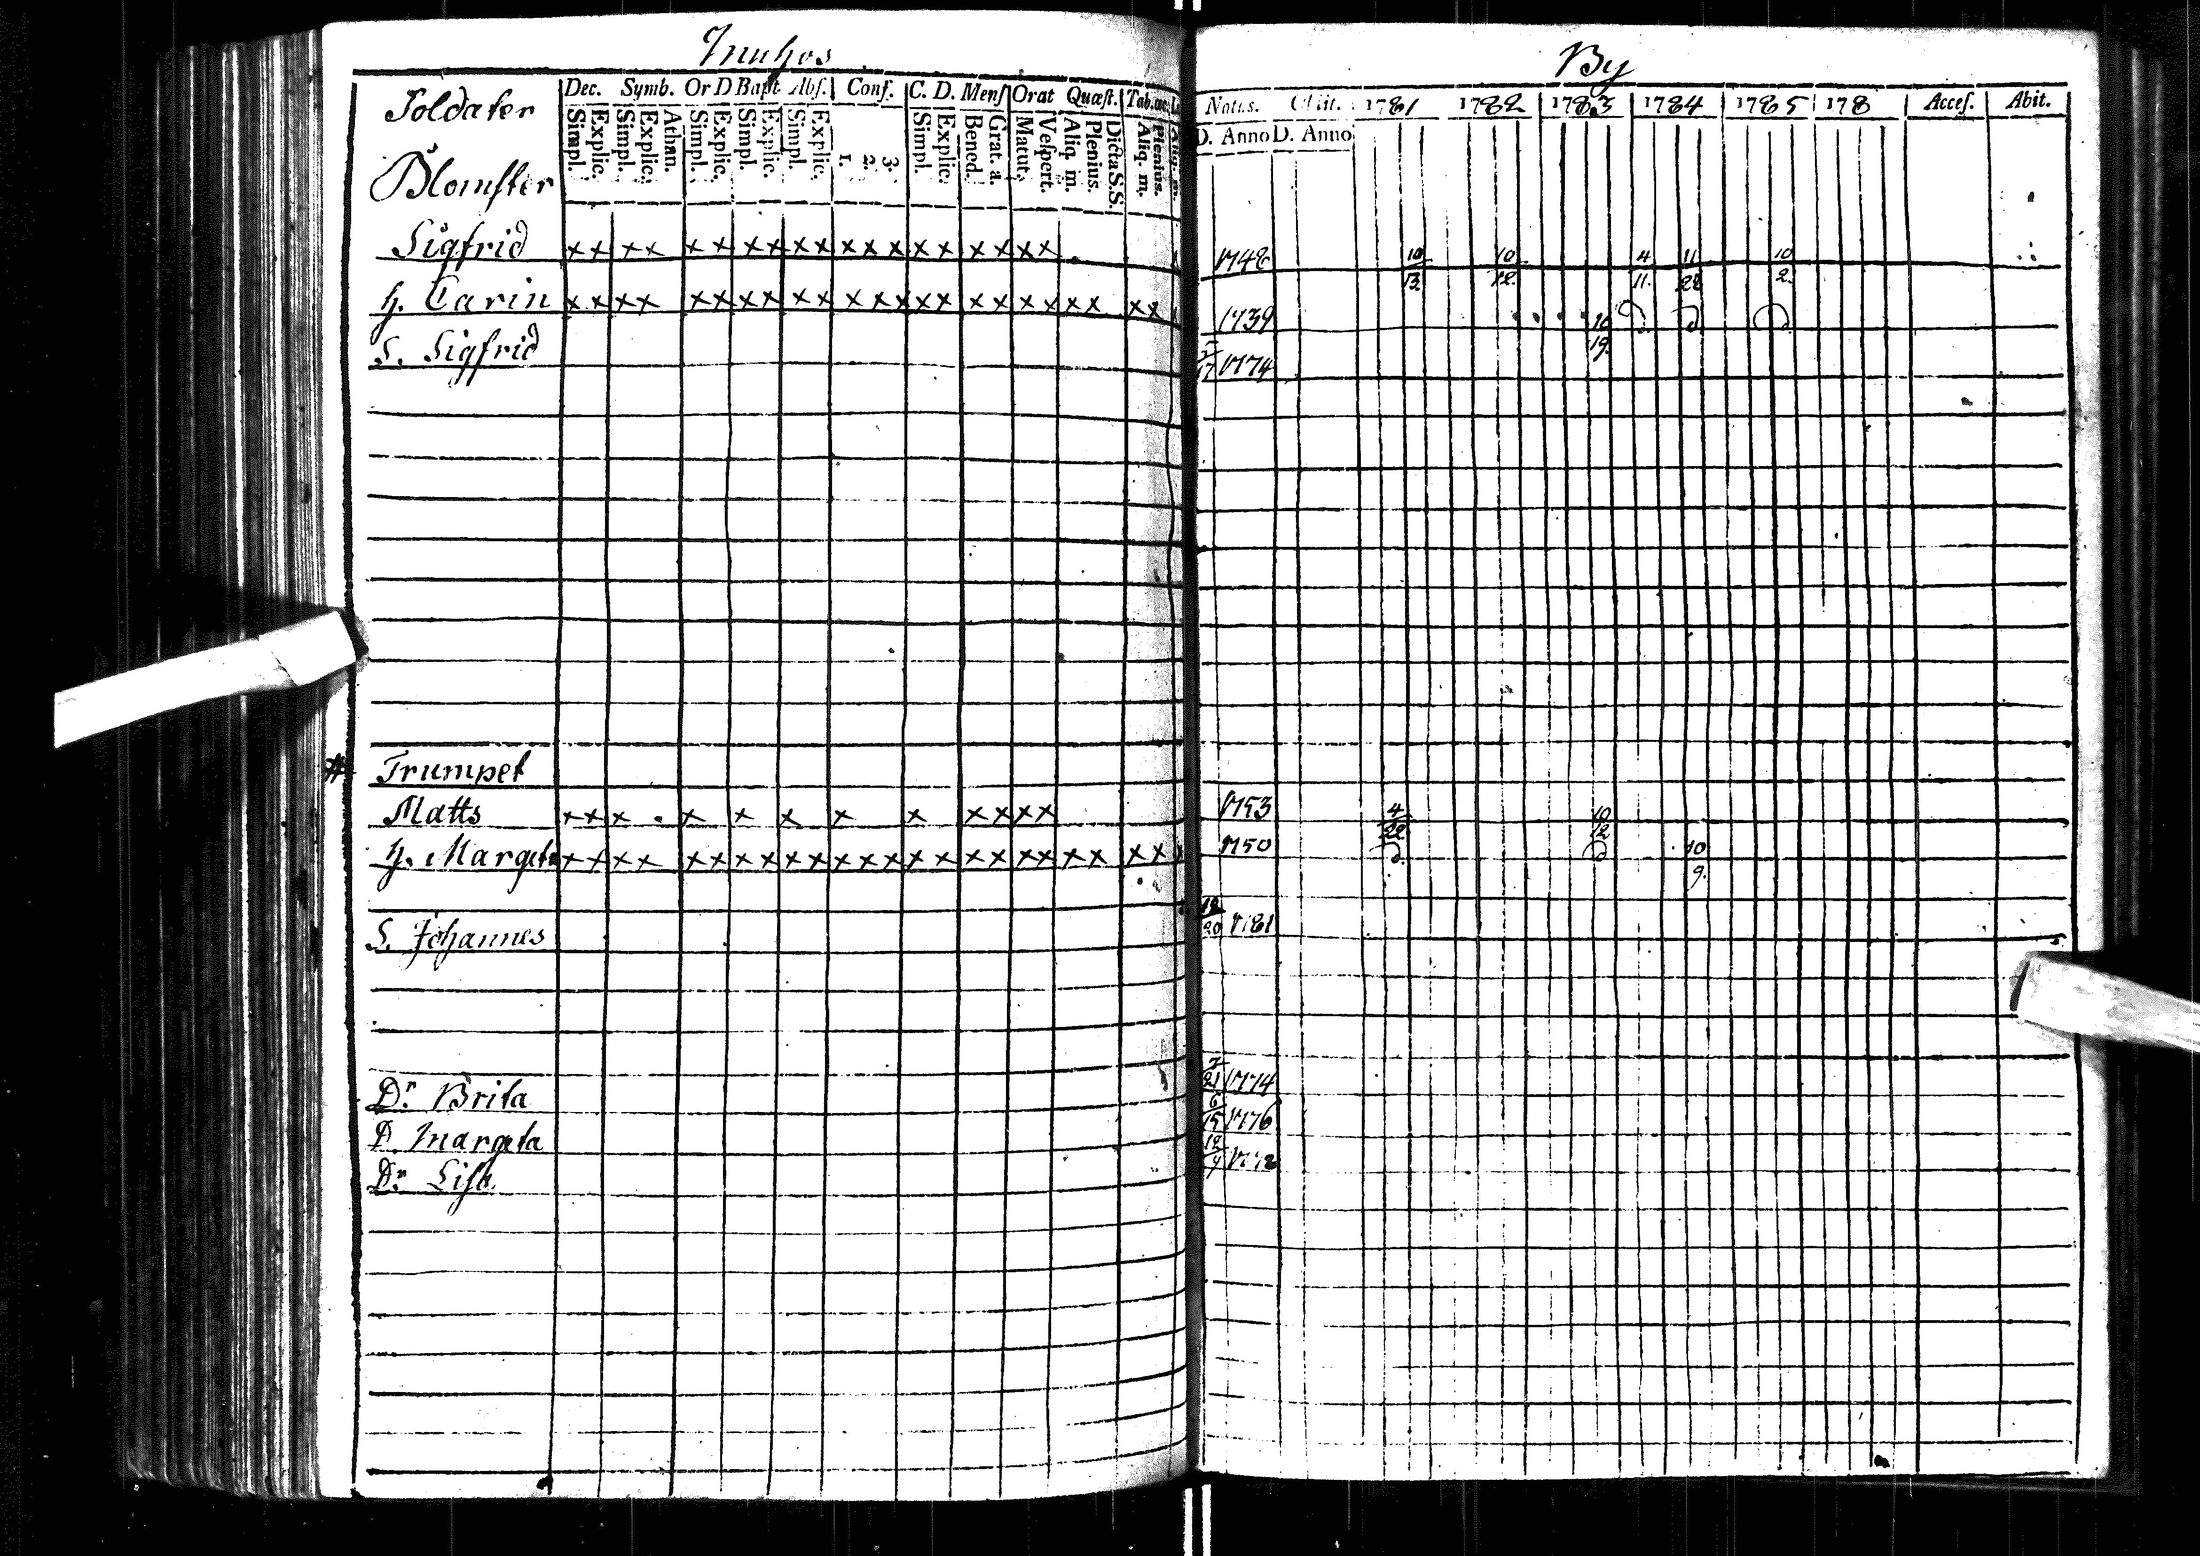 Inuhos By
Soldater Dec. Symb. Or D Bapt. Abs. Conf. C. D. Mens Orat Quæst. Tab.
Simpl. Explic. Simpl. Explic. Athan. Simpl. Explic. Simpl. Explic. Simpl. Explic. 1. 2. 3. Simpl. Explic. Bened. Grat. a. Matut. Vespert. Aliq. m. Plenius. Dicta S.S. Aliq. m. Plenius.
Natus. Obit. 1781 1782 1783 1784 1785 178 Acces. Abit.
D. Anno D. Anno
Blomster
Sigfrid x x x x x x x x x x x x x x x x x x x 1748 10/13 10/12. 4/11. 11/28 10/2.
H. Carin x x x x x x x x x x x x x x x x x x x x x x x 1739 10/19. D D D
S. Sigfrid 1774
Trumpet
Matts x x x x x x x x x x x x 1753 4/22 10/12
H. Margeta x x x x x x x x x x x x x x x x x x x x x x x 1750 D. D 10/9.
S. Johannes 1781
Dr. Brita 7/21 1774
D. Margeta 6/15 1776
Dr. Lisa